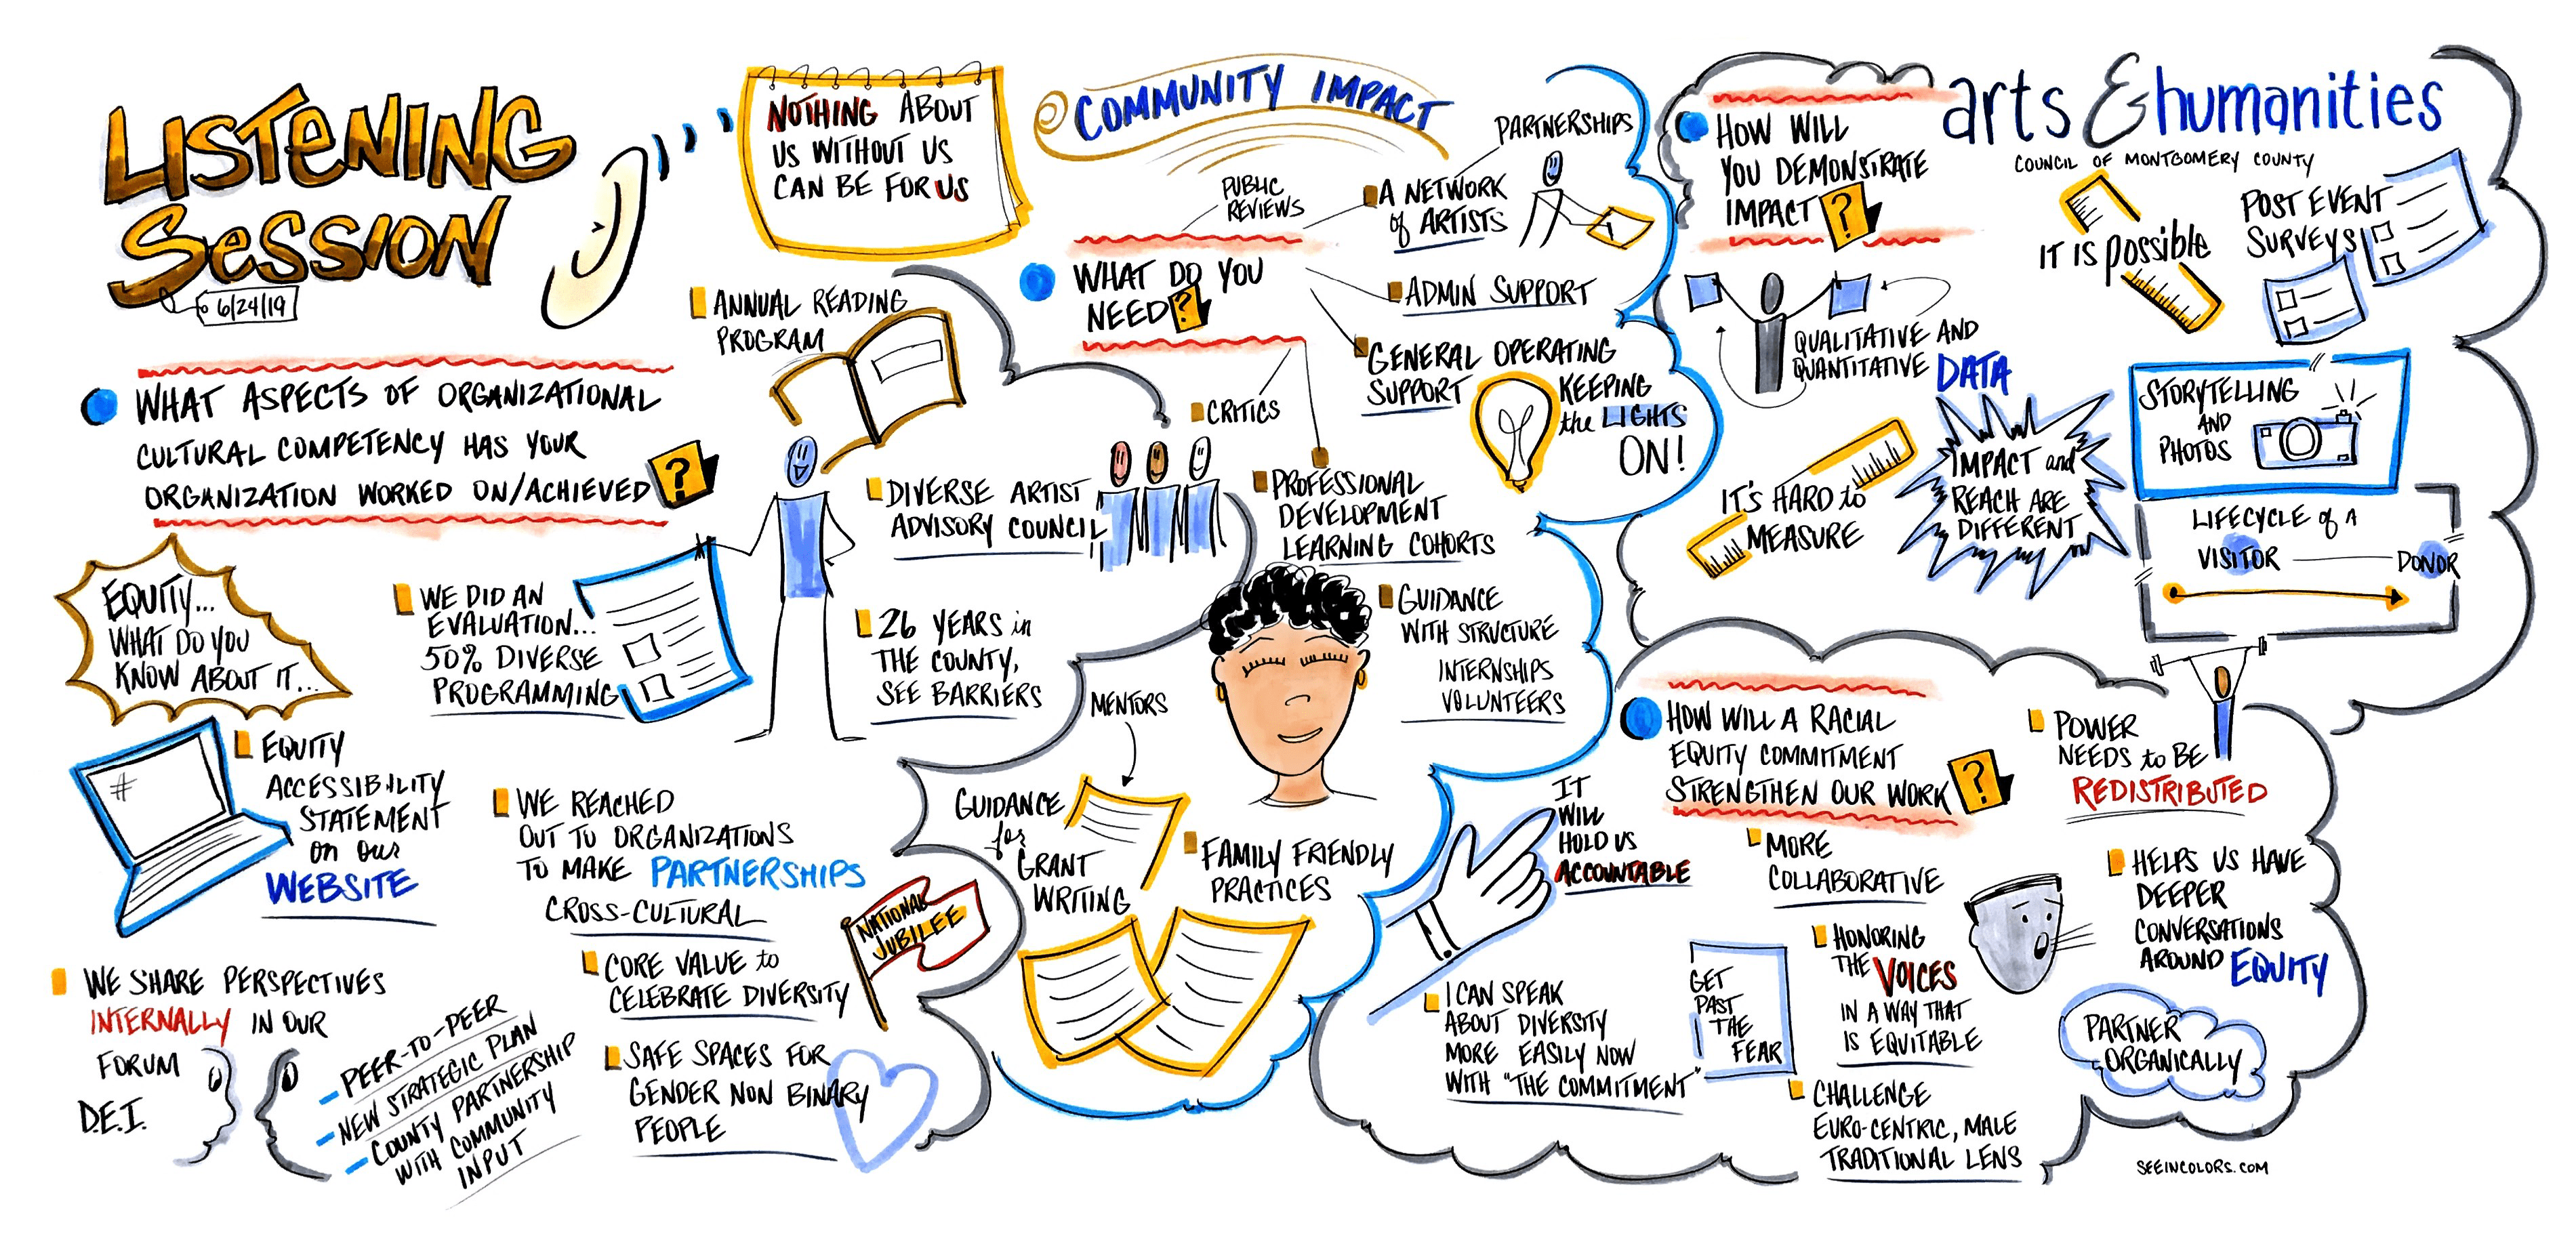 LISTENING
SESSION
6/24/19
NOTHING ABOUT
US WITHOUT US
CAN BE FOR US
COMMUNITY IMPACT
arts & humanities
COUNCIL OF MONTGOMERY COUNTY
WHAT ASPECTS OF ORGANIZATIONAL
CULTURAL COMPETENCY HAS YOUR
ORGANIZATION WORKED ON/ACHIEVED
?
EQUITY...
WHAT DO YOU
KNOW ABOUT IT...
WE DID AN
EVALUATION...
50% DIVERSE
PROGRAMMING
ANNUAL READING
PROGRAM
DIVERSE ARTIST
ADVISORY COUNCIL
26 YEARS in
THE COUNTY,
SEE BARRIERS
#
EQUITY
ACCESSIBILITY
STATEMENT
on our
WEBSITE
WE REACHED
OUT TO ORGANIZATIONS
TO MAKE PARTNERSHIPS
CROSS-CULTURAL
CORE VALUE to
CELEBRATE DIVERSITY
NATIONAL
JUBILEE
SAFE SPACES FOR
GENDER NON BINARY
PEOPLE
WE SHARE PERSPECTIVES
INTERNALLY IN OUR
FORUM
D.E.I.
- PEER-TO-PEER
- NEW STRATEGIC PLAN
- COUNTY PARTNERSHIP
WITH COMMUNITY
INPUT
WHAT DO YOU
NEED?
PUBLIC
REVIEWS
PARTNERSHIPS
A NETWORK
of ARTISTS
ADMIN SUPPORT
GENERAL OPERATING
SUPPORT
KEEPING
the LIGHTS
ON!
CRITICS
PROFESSIONAL
DEVELOPMENT
LEARNING COHORTS
GUIDANCE
WITH STRUCTURE
INTERNSHIPS
VOLUNTEERS
MENTORS
GUIDANCE
for
GRANT
WRITING
FAMILY FRIENDLY
PRACTICES
HOW WILL
YOU DEMONSTRATE
IMPACT?
QUALITATIVE AND
QUANTITATIVE DATA
IT IS possible
POST EVENT
SURVEYS
IT'S HARD to
MEASURE
IMPACT and
REACH ARE
DIFFERENT
STORYTELLING
AND
PHOTOS
LIFECYCLE of A
VISITOR
DONOR
HOW WILL A RACIAL
EQUITY COMMITMENT
STRENGTHEN OUR WORK
?
IT
WILL
HOLD US
ACCOUNTABLE
I CAN SPEAK
ABOUT DIVERSITY
MORE EASILY NOW
WITH "THE COMMITMENT"
GET
PAST
THE
FEAR
MORE
COLLABORATIVE
HONORING
THE VOICES
IN A WAY THAT
IS EQUITABLE
CHALLENGE
EURO-CENTRIC, MALE
TRADITIONAL LENS
POWER
NEEDS to BE
REDISTRIBUTED
HELPS US HAVE
DEEPER
CONVERSATIONS
AROUND EQUITY
PARTNER
ORGANICALLY
SEEINCOLORS.COM